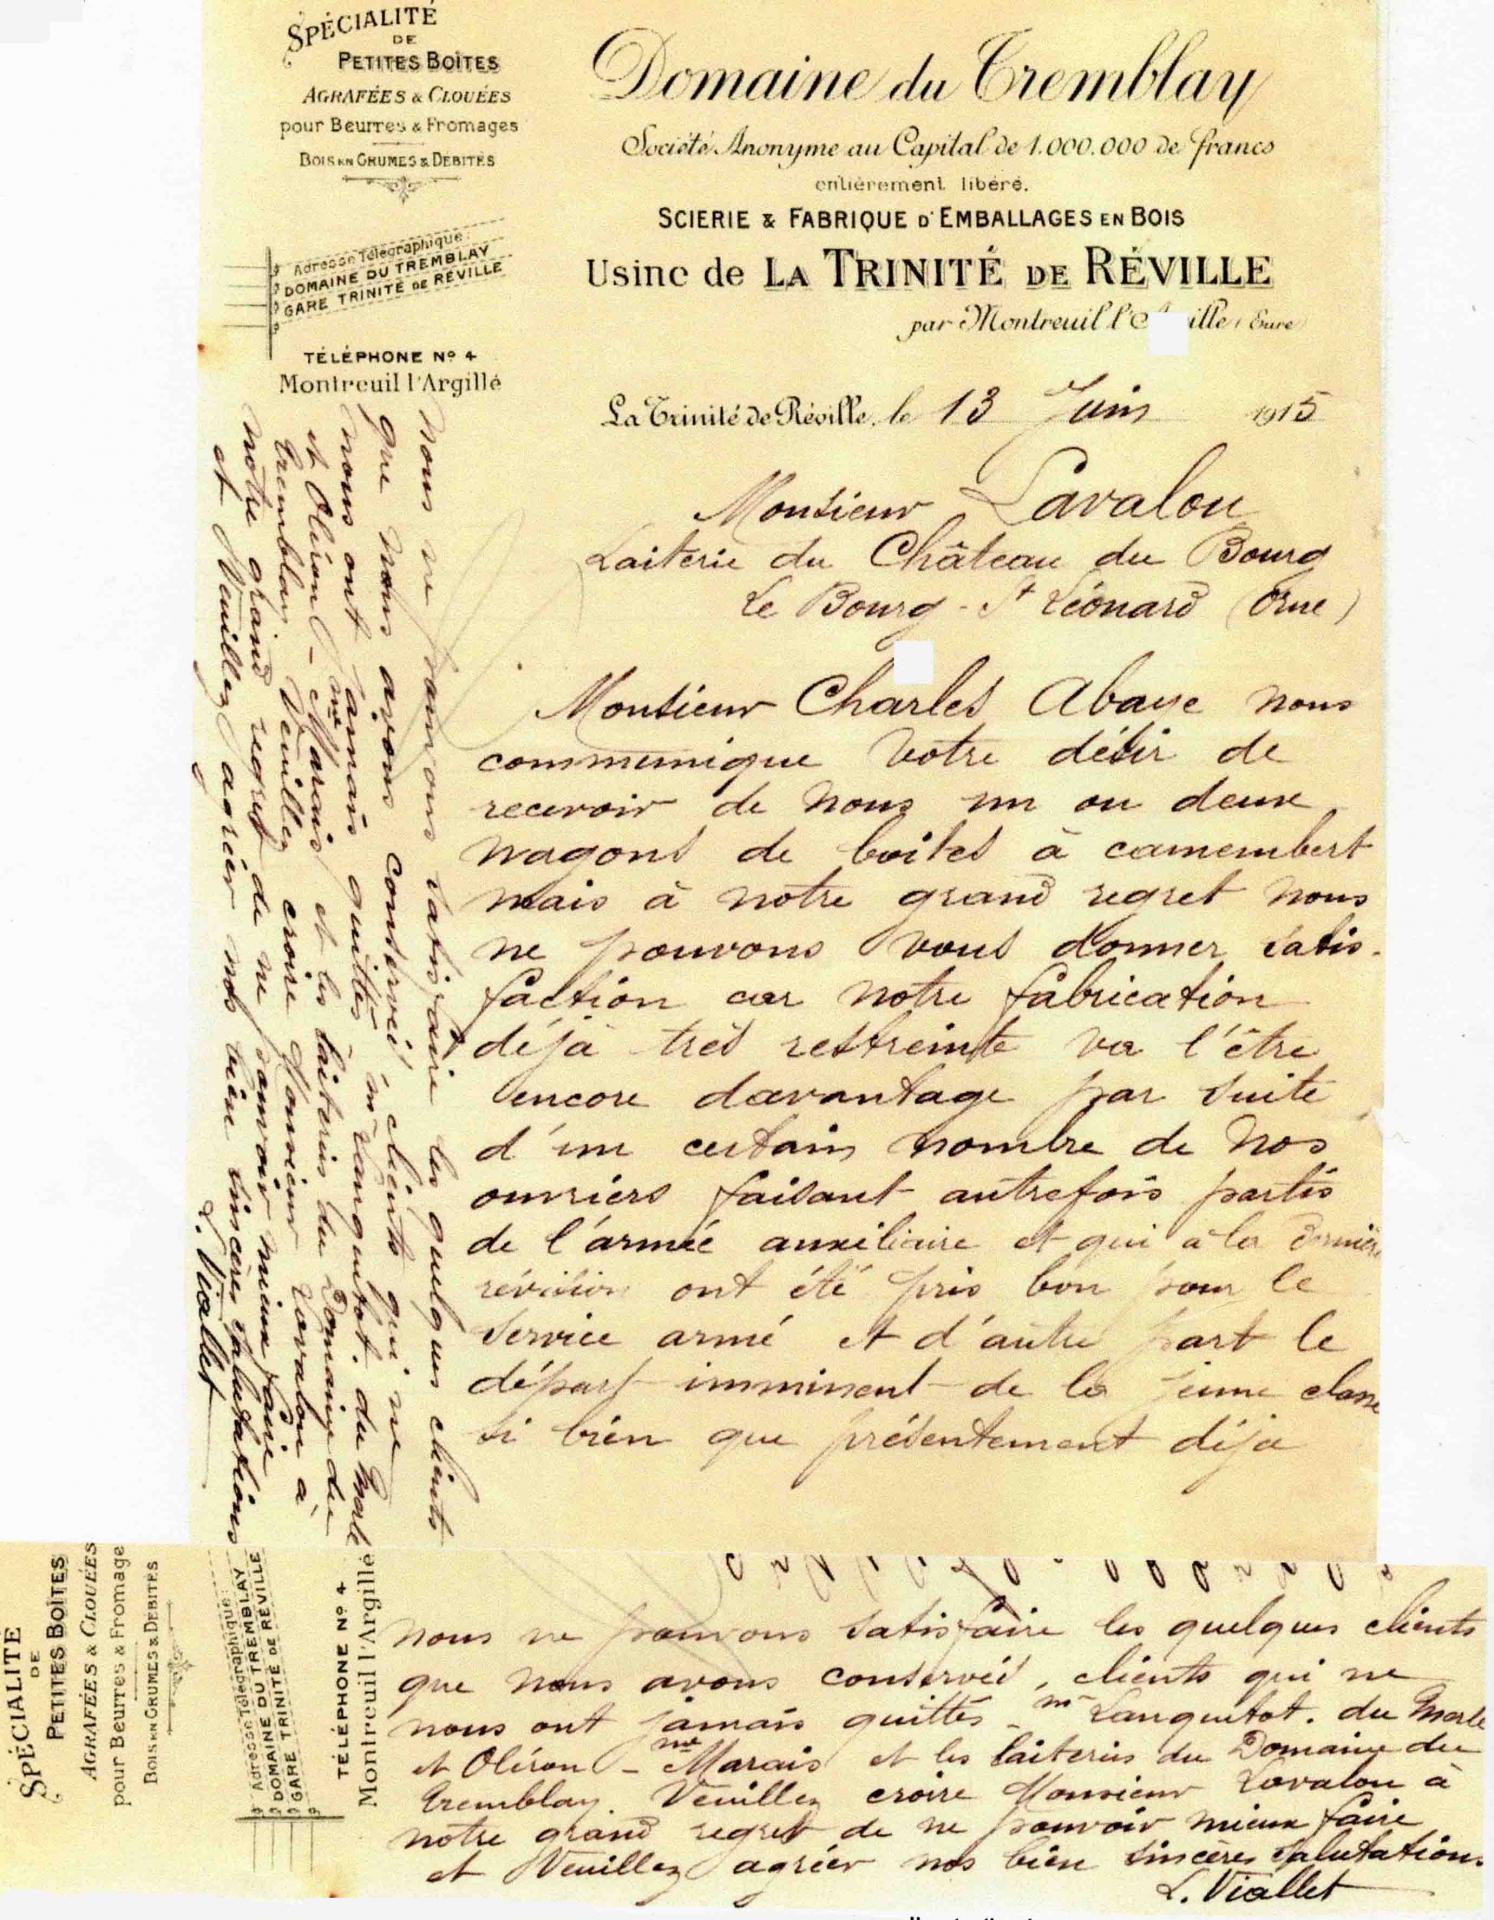 SPÉCIALITÉ
DE
PETITES BOÎTES
AGRAFÉES & CLOUÉES
pour Beurres & Fromages
BOIS EN GRUMES & DÉBITÉS
Adresse Télégraphique:
DOMAINE DU TREMBLAY
GARE TRINITÉ DE RÉVILLE
TÉLÉPHONE Nº 4
Montreuil l'Argillé
Domaine du Tremblay
Société Anonyme au Capital de 1.000.000 de francs
entièrement libéré.
SCIERIE & FABRIQUE D'EMBALLAGES EN BOIS
Usine de LA TRINITÉ DE RÉVILLE
par Montreuil l' ille (Eure)
La Trinité de Réville, le 13 Juin 1915
Monsieur Lavalou
Laiterie du Château du Bourg
Le Bourg - St Léonard (Orne)
Monsieur Charles Abaye nous
communique votre désir de
recevoir de nous un ou deux
wagons de boites à camembert
mais à notre grand regret nous
ne pouvons vous donner satis-
faction car notre fabrication
déjà très restreinte va l'être
encore davantage par suite
d'un certain nombre de nos
ouvriers faisant autrefois partis
de l'armée auxiliaire et qui à la dernière
révision ont été pris bon pour le
service armé et d'autre part le
départ imminent de la jeune classe
si bien que présentement déja
nous ne pouvons satisfaire les quelques clients
que nous avons conservés, clients qui ne
nous ont jamais quittés - mr Lanquetot. du Merle
et Oléron - me Marais et les laiteries du Domaine du
Tremblay. Veuillez croire Monsieur Lavalou à
notre grand regret de ne pouvoir mieux faire
et Veuillez agréer nos bien sincères salutations
L. Viallet
SPÉCIALITÉ
DE
PETITES BOÎTES
AGRAFÉES & CLOUÉES
pour Beurres & Fromage
BOIS EN GRUMES & DÉBITÉS
Adresse Télégraphique:
DOMAINE DU TREMBLAY
GARE TRINITÉ DE RÉVILLE
TÉLÉPHONE Nº 4
Montreuil l'Argillé
nous ne pouvons satisfaire les quelques clients
que nous avons conservés, clients qui ne
nous ont jamais quittés - mr Lanquetot. du Merle
et Oléron - me Marais et les laiteries du Domaine du
Tremblay. Veuillez croire Monsieur Lavalou à
notre grand regret de ne pouvoir mieux faire
et Veuillez agréer nos bien sincères salutations.
L. Viallet